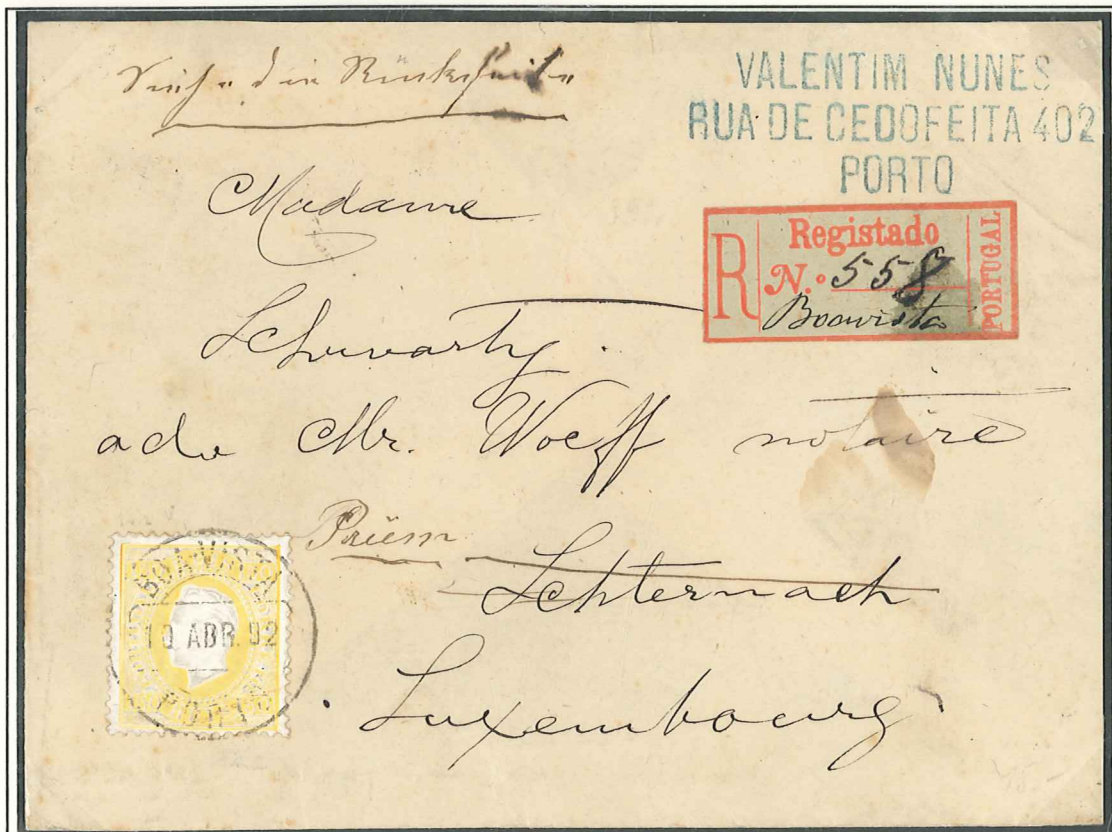 Siehe die Rückseite
VALENTIM NUNES
RUA DE CEDOFEITA 402
PORTO
Madame
R Registado PORTUGAL
N.º 558
Boavista
Schwartz
Mr. Woeff notaire
Prüm
Echternach
Luxembourg
BOAVISTA
10 ABR. 92
PORTO